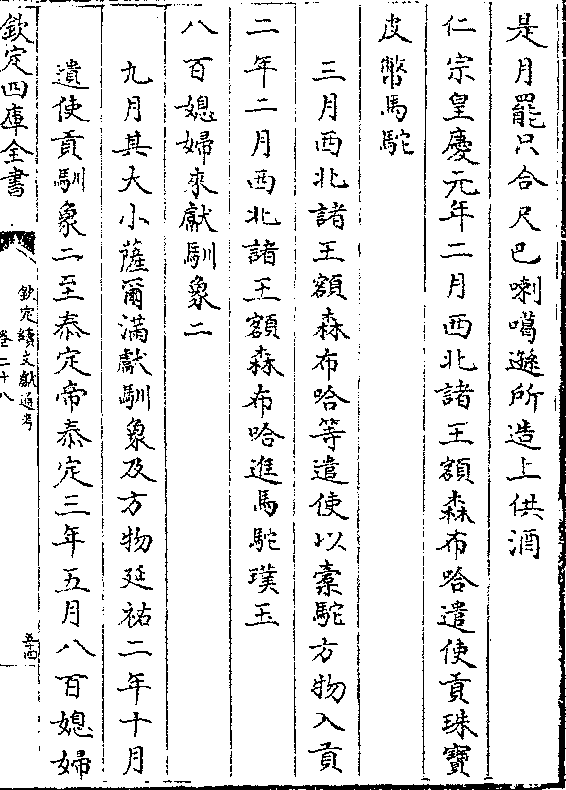 是月罷只合尺巴喇噶遜所造上供酒
仁宗皇慶元年二月西北諸王額森布哈遣使貢珠寶
皮幣馬駝
三月西北諸王額森布哈等遣使以橐駝方物入貢
二年二月西北諸王額森布哈進馬駝璞玉
八百媳婦來獻馴象二
九月其大小薩爾滿獻馴象及方物延祐二年十月
遣使貢馴象二至泰定帝泰定三年五月八百媳婦
欽定四庫全書
欽定續文獻通考
卷二十八